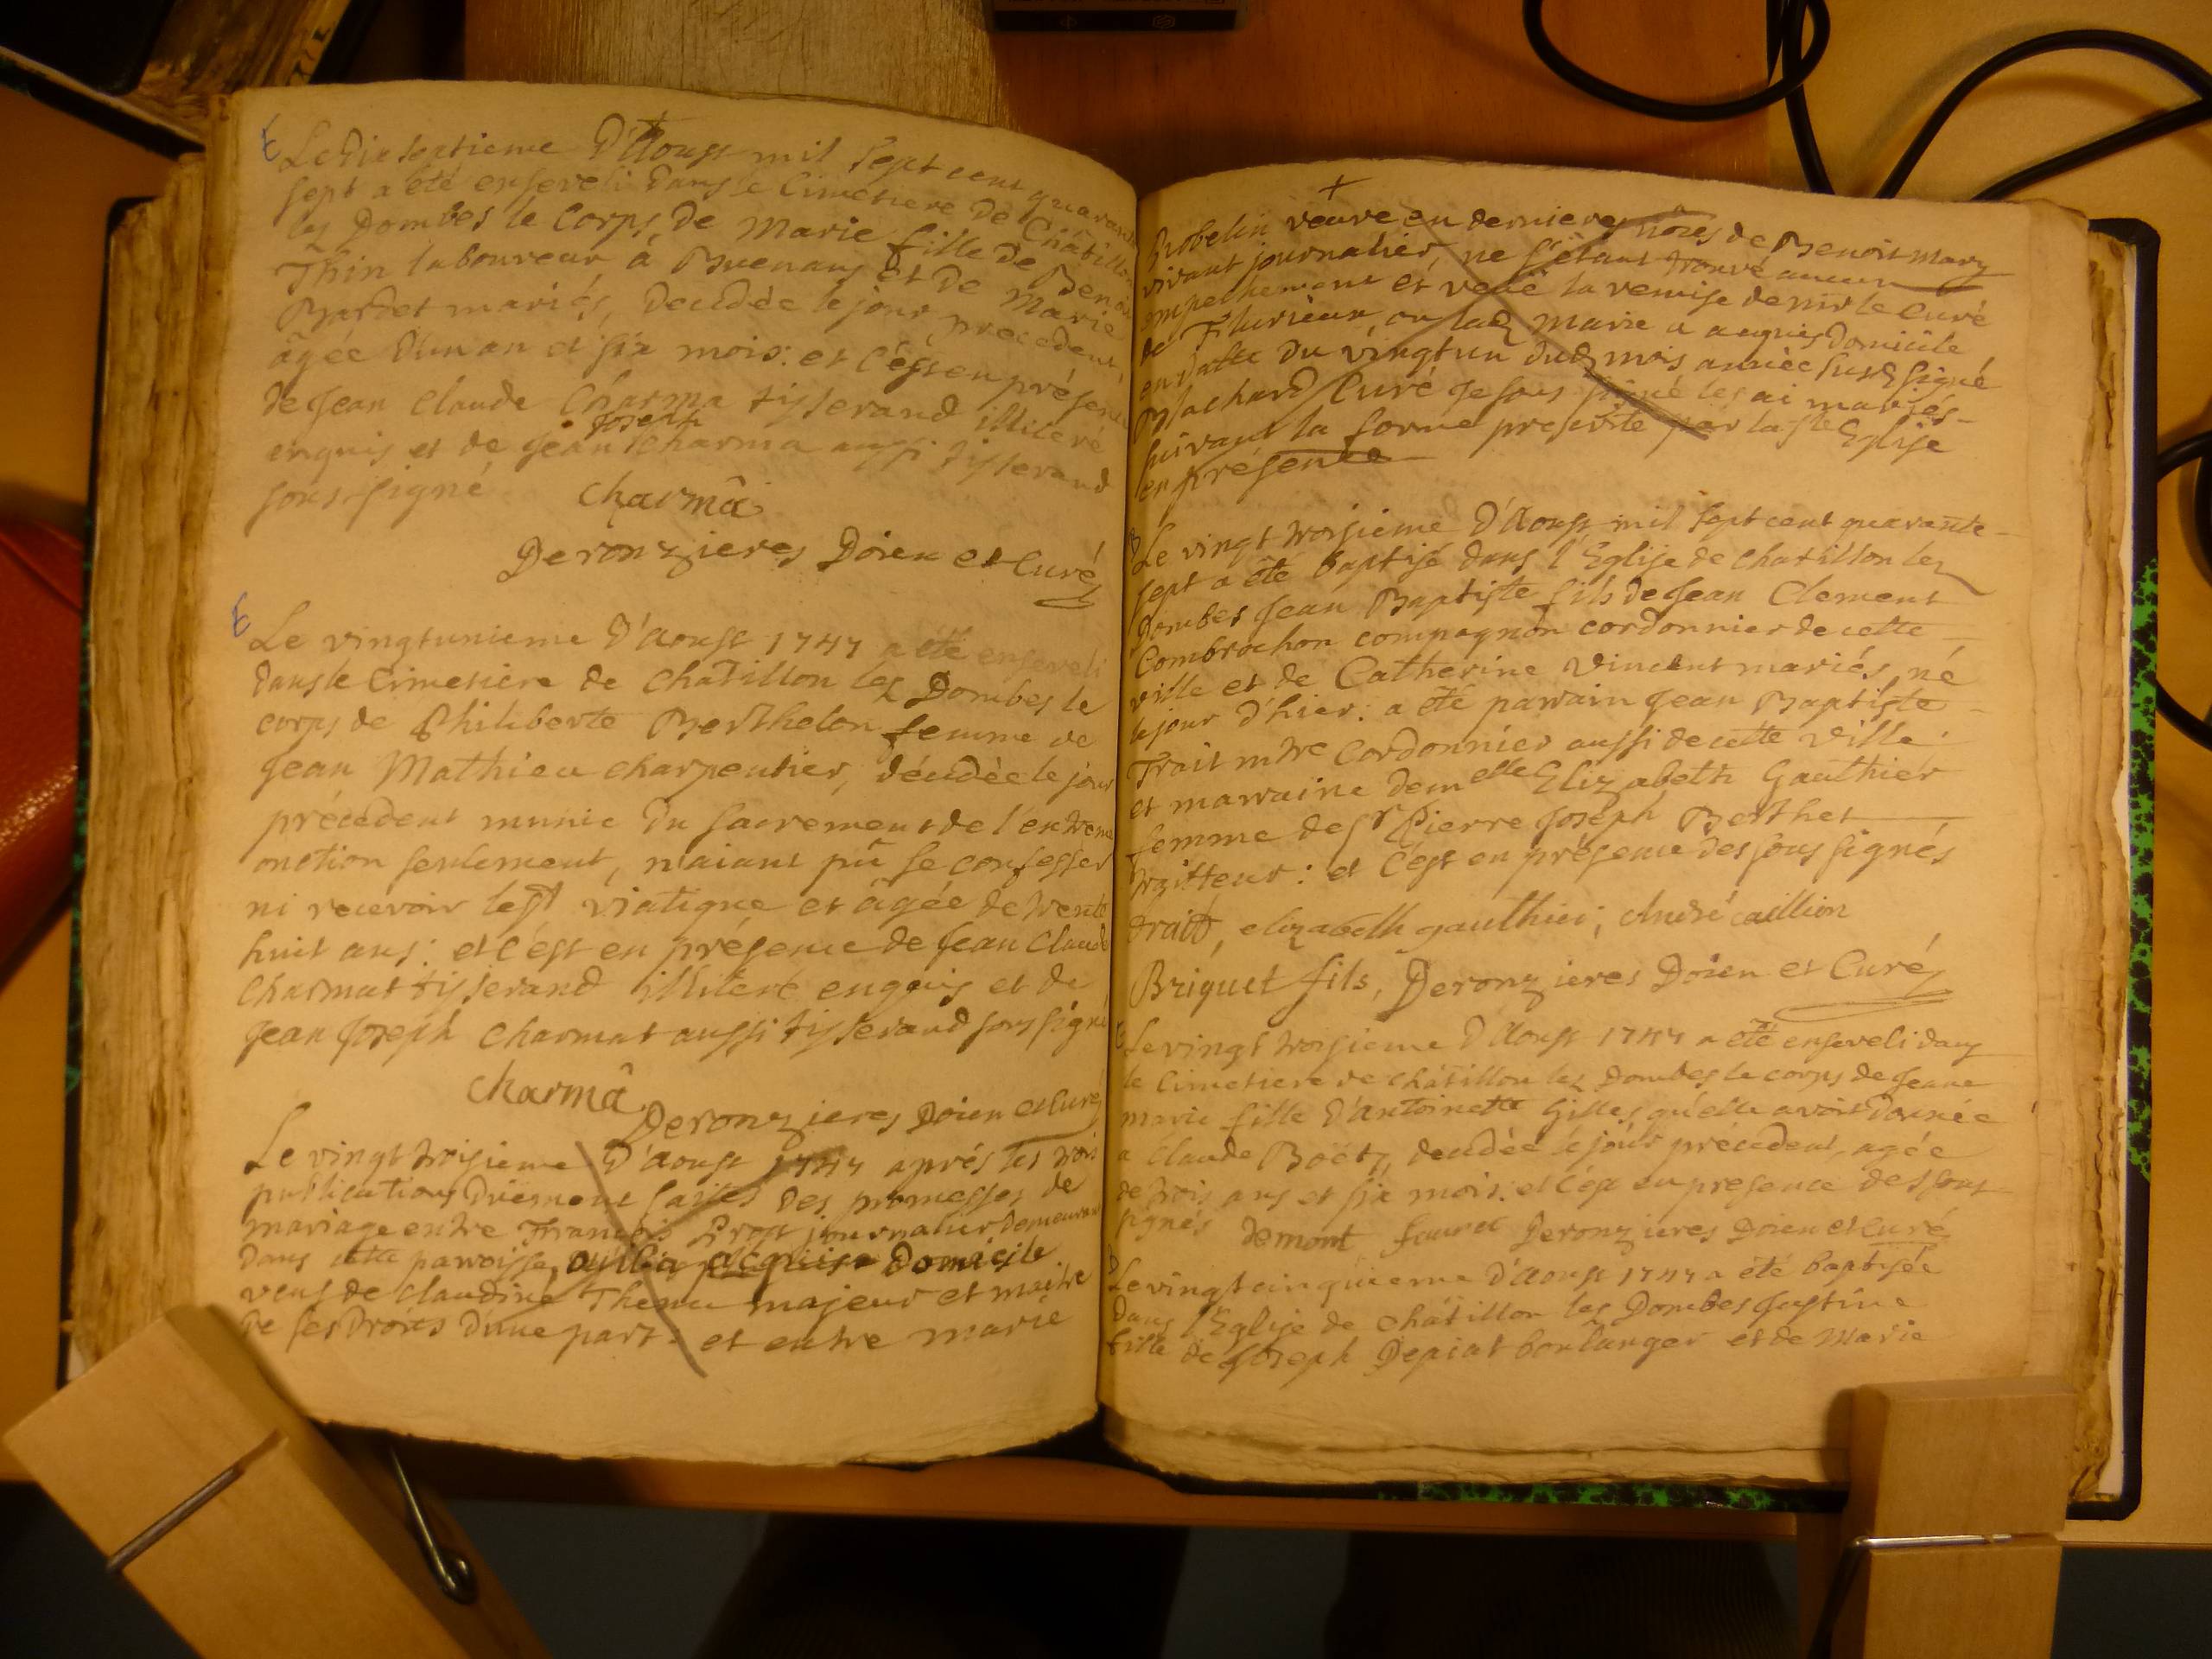 E Le dix septieme D'Aoust mil sept cent quarante
sept a été enseveli dans le Cimetiere de Châtillon
les Dombes le Corps de Marie fille de Benoit
Thin laboureur à Buenans et de Marie
Bardet mariés, decedée le jour precedent,
âgée d'un an et six mois: et c'est en présence
de Jean Claude Charma tisserand illiteré
Joseph
enquis et de Jean Charma aussi tisserand
sous signé
Charmâ
Deronzieres Doien et Curé
E Le vingtunieme D'aoust 1747 a été enseveli
dans le Cimetiere de Chatillon les Dombes le
corps de Philiberte Berthelon femme de
Jean Mathieu charpentier, décédée le jour
précedent munie du sacrement de l'extreme
onction seulement, n'aiant pû se confesser
ni recevoir le st viatique et âgée de trente
huit ans: et c'est en présence de Jean Claude
Charmat tisserand illiteré enquis et de
Jean Joseph Charmat aussi tisserand sous signé
Charmâ
Deronzieres Doien et Curé
Le vingt troisieme D'aoust 1747 aprés les trois
publications düement faites des promesses de
mariage entre François Prost journalier demeurant
dans cette paroisse, acquise Domicile
veuf de Claudine majeur et maitre
de ses droits d'une part: et entre marie
+
Robelin veuve en dernieres nôces de Benoit mary
vivant journalier, ne s'étant trouvé aucun
empechement et veüe la remise de mr le Curé
de Flurieux, ou lad marie a acquis Domicile
en datte du vingtun dud mois année susd signé
Blachard Curé Je sous signé les ai mariés
suivant la forme prescrite par la ste Eglise
en présence
B Le vingt troisieme D'Aoust mil sept cent quarante
sept a été baptisé dans l'Eglise de Chatillon les
Dombes Jean Baptiste fils de Jean Clement
Combrochon compagnon cordonnier de cette
ville et de Catherine Vincent mariés, né
le jour d'hier: a été parrain Jean Baptiste
Trait mtre Cordonnier aussi de cette ville
et marraine demelle Elizabeth Gauthier
femme de Sr Pierre Joseph Berthet
traitteur: et c'est en présence des sous signés
trait, elizabelh gauthier, André caillion
Briquet fils, Deronzieres Doien et Curé
E Le vingt troisieme D'Aoust 1747 a été enseveli dans
le Cimetiere de Châtillon les Dombes le corps de Jeane
marie fille D'antoinette Gilles qu'elle avoit donnée
a Claude Boët, decedée le jour précedent, agée
de trois ans et six mois: et c'est en presence des sous
signés demont fauret Deronzieres Doien et Curé
B Le vingt cinquieme D'Aoust 1747 a été baptisée
dans l'Eglise de Châtillon les Dombes Justine
fille de Joseph Depiat boulanger et de Marie